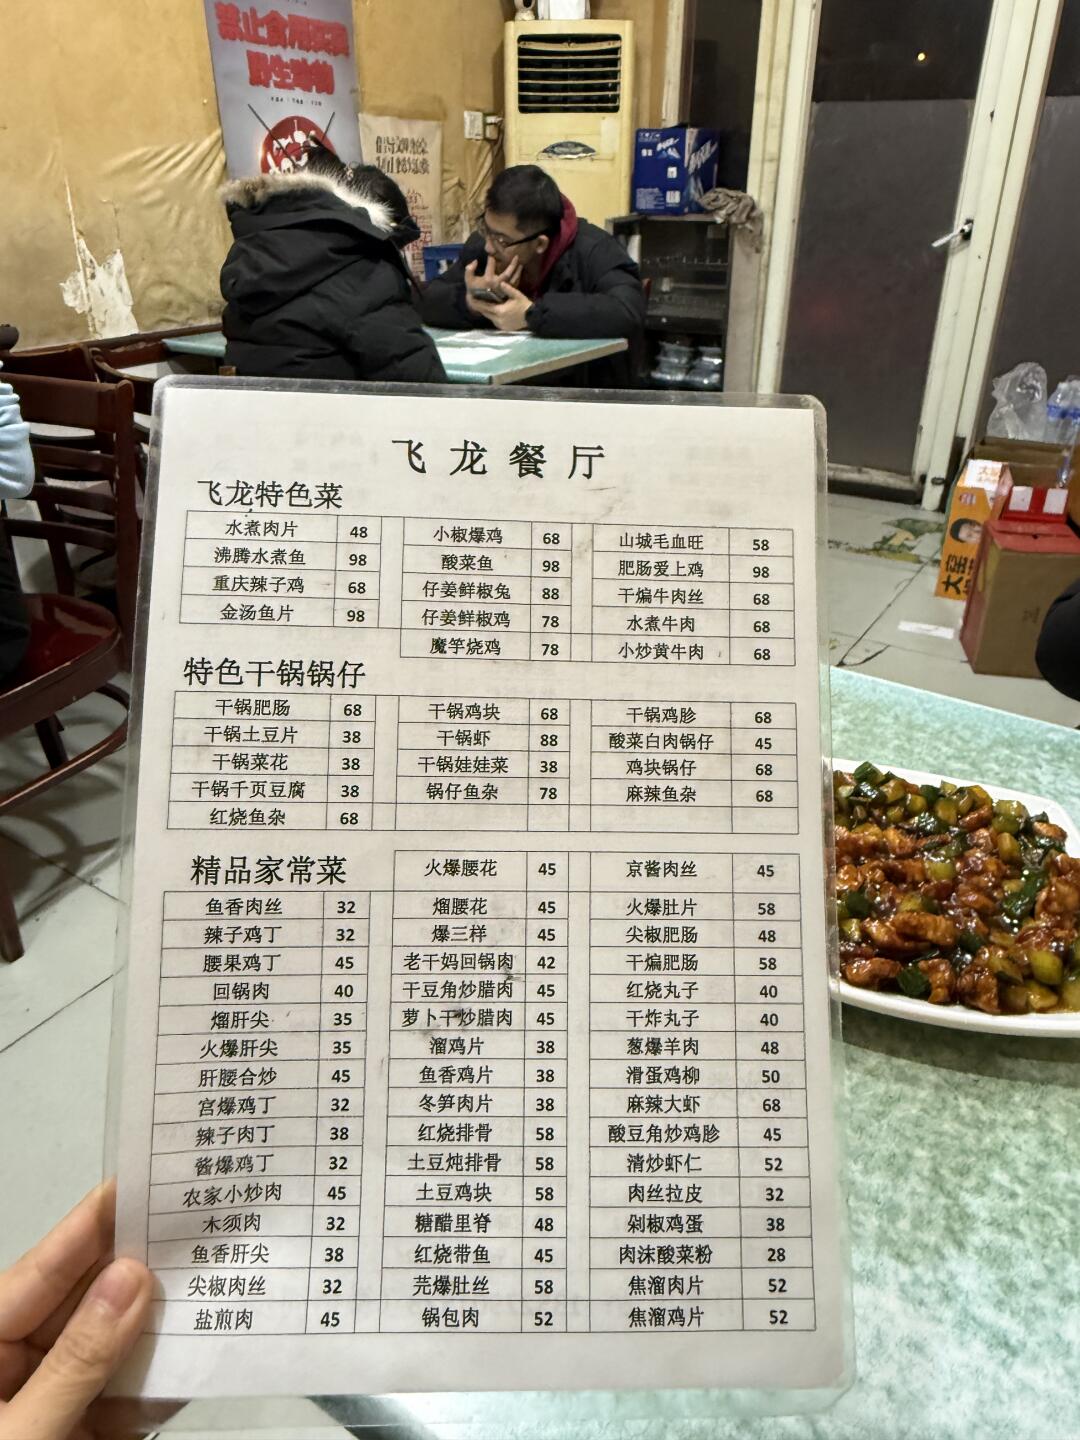 禁止食用买卖
野生动物
飞龙餐厅
飞龙特色菜
水煮肉片 48 小椒爆鸡 68 山城毛血旺 58
沸腾水煮鱼 98 酸菜鱼 98 肥肠爱上鸡 98
重庆辣子鸡 68 仔姜鲜椒兔 88 干煸牛肉丝 68
金汤鱼片 98 仔姜鲜椒鸡 78 水煮牛肉 68
魔竽烧鸡 78 小炒黄牛肉 68
特色干锅锅仔
干锅肥肠 68 干锅鸡块 68 干锅鸡胗 68
干锅土豆片 38 干锅虾 88 酸菜白肉锅仔 45
干锅菜花 38 干锅娃娃菜 38 鸡块锅仔 68
干锅千页豆腐 38 锅仔鱼杂 78 麻辣鱼杂 68
红烧鱼杂 68
精品家常菜 火爆腰花 45 京酱肉丝 45
鱼香肉丝 32 熘腰花 45 火爆肚片 58
辣子鸡丁 32 爆三样 45 尖椒肥肠 48
腰果鸡丁 45 老干妈回锅肉 42 干煸肥肠 58
回锅肉 40 干豆角炒腊肉 45 红烧丸子 40
熘肝尖 35 萝卜干炒腊肉 45 干炸丸子 40
火爆肝尖 35 溜鸡片 38 葱爆羊肉 48
肝腰合炒 45 鱼香鸡片 38 滑蛋鸡柳 50
宫爆鸡丁 32 冬笋肉片 38 麻辣大虾 68
辣子肉丁 38 红烧排骨 58 酸豆角炒鸡胗 45
酱爆鸡丁 32 土豆炖排骨 58 清炒虾仁 52
农家小炒肉 45 土豆鸡块 58 肉丝拉皮 32
木须肉 32 糖醋里脊 48 剁椒鸡蛋 38
鱼香肝尖 38 红烧带鱼 45 肉沫酸菜粉 28
尖椒肉丝 32 芫爆肚丝 58 焦溜肉片 52
盐煎肉 45 锅包肉 52 焦溜鸡片 52